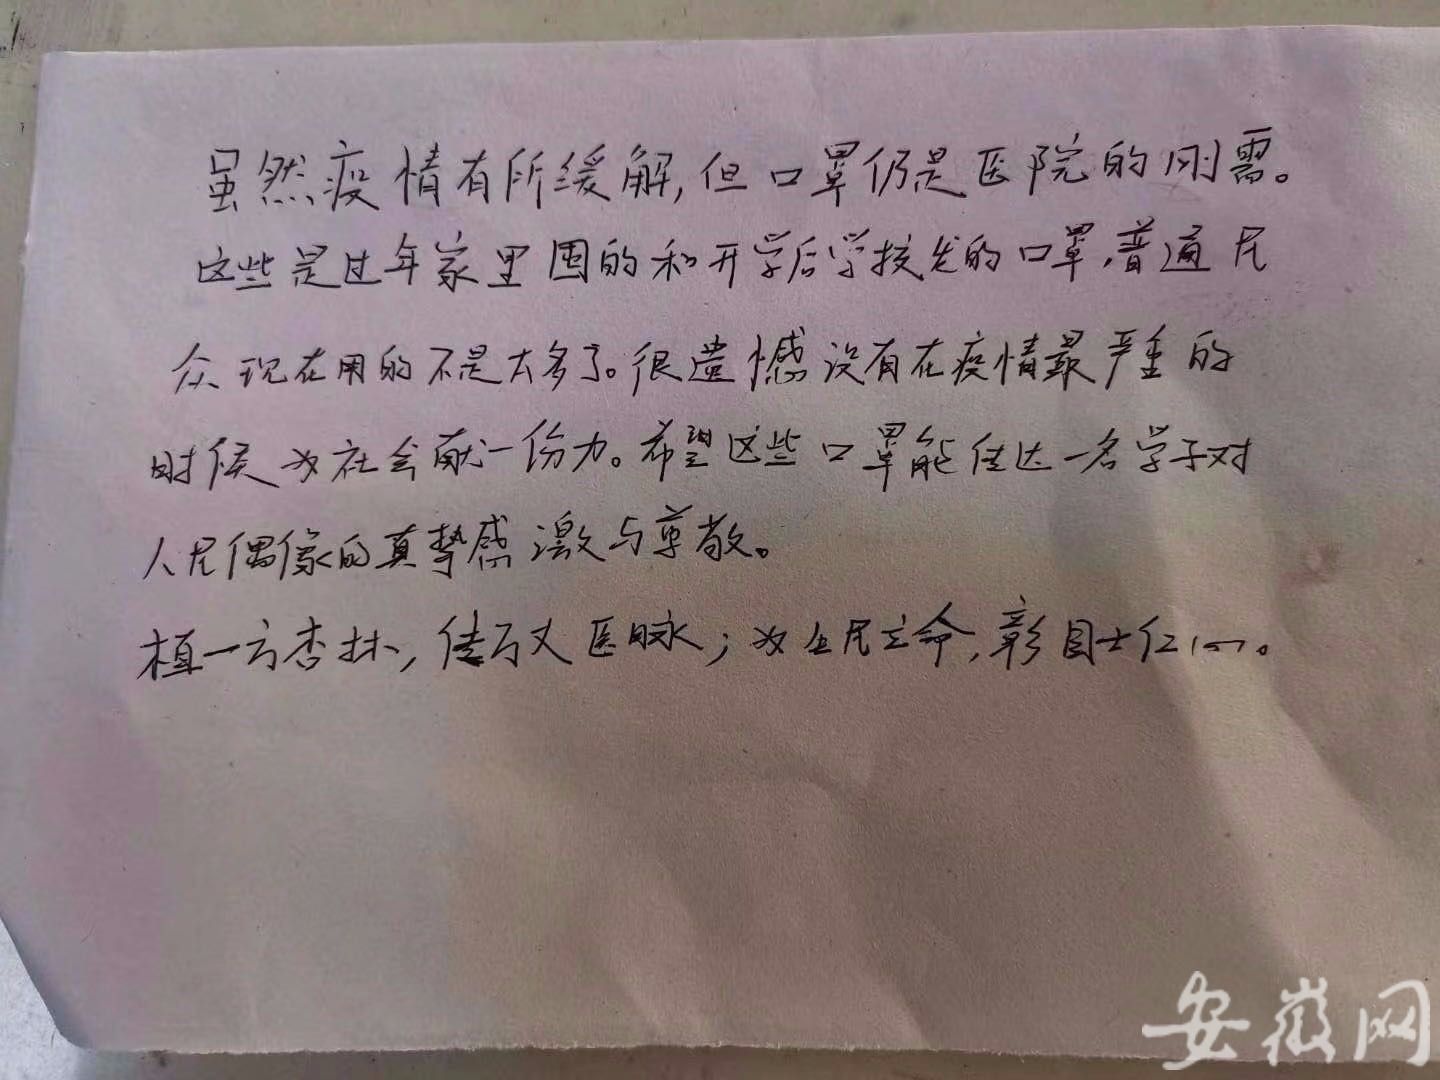 虽然疫情有所缓解,但口罩仍是医院的刚需。
这些是过年家里囤的和开学后学校发的口罩,普通民
众现在用的不是太多了。很遗憾没有在疫情最严重的
时候为社会献一份力。希望这些口罩能传达一名学子对
人民偶像的真挚感激与尊敬。
植一方杏林,传万丈医脉;为生民立命,彰国士仁心。
安徽网